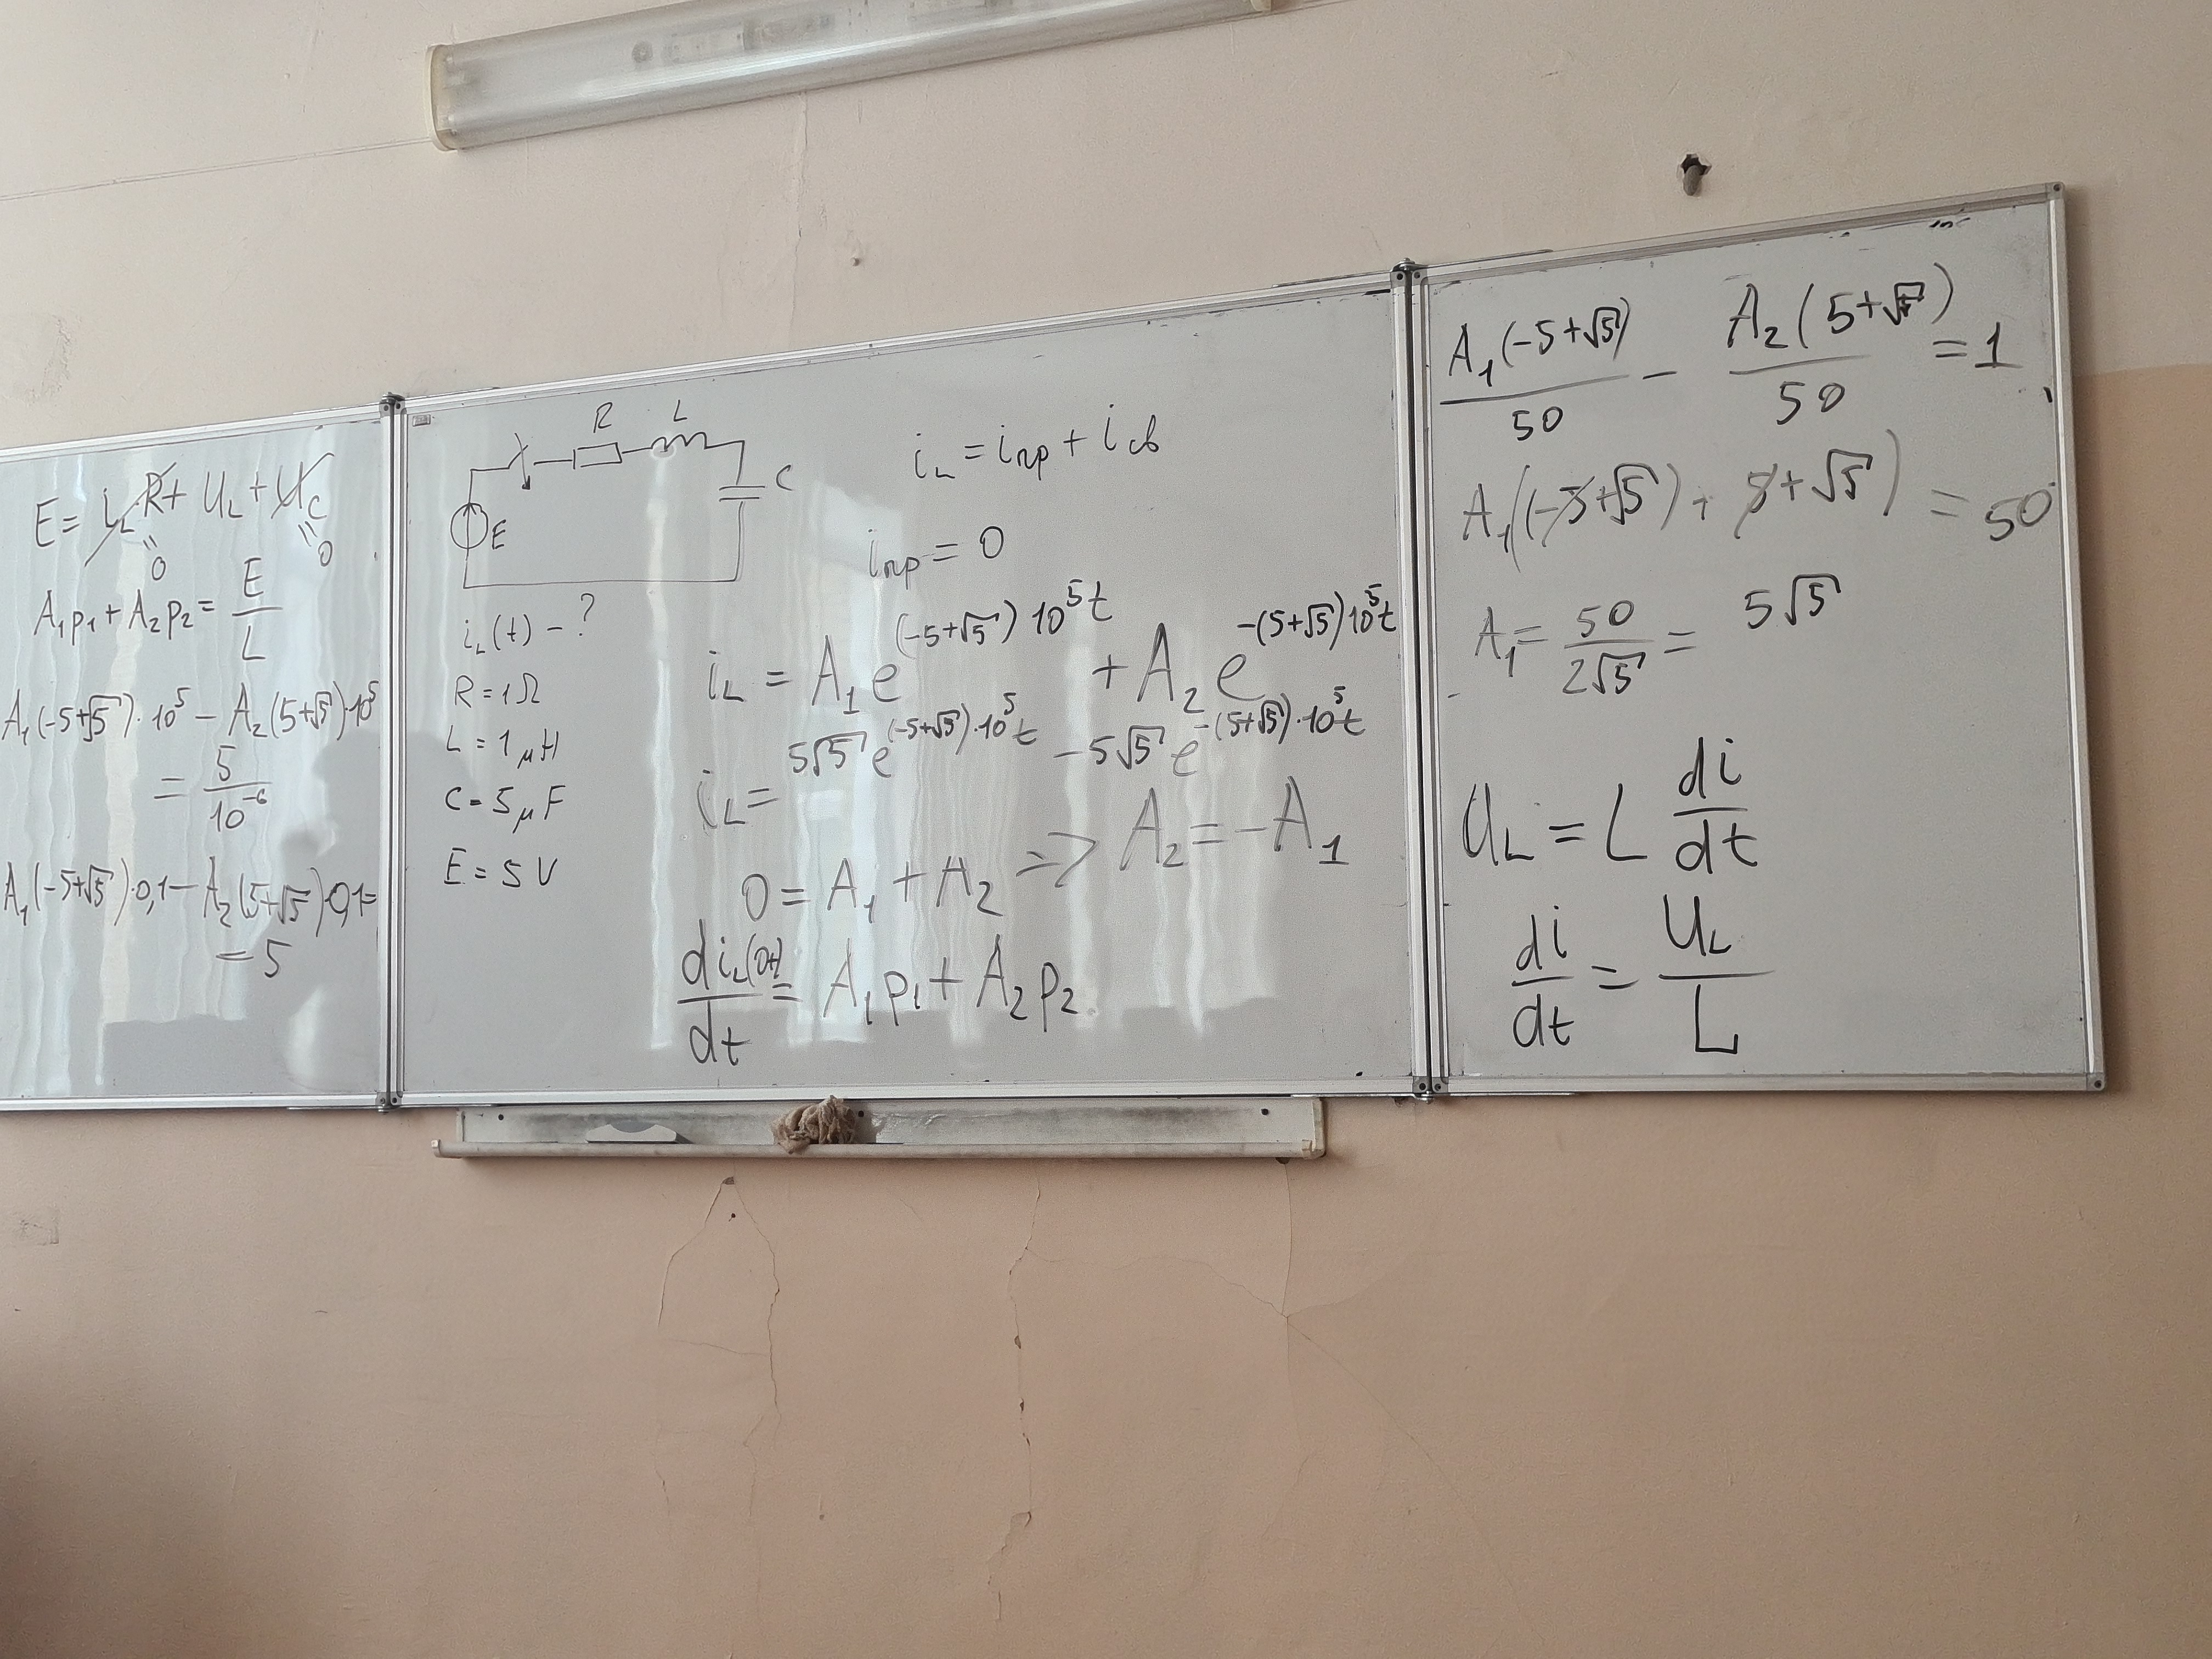 E = i_L R + U_L + U_C
0 0
A₁p₁ + A₂p₂ = E/L
A₁(-5+√5)·10⁵ - A₂(5+√5)·10⁵
= 5/10⁻⁶
A₁(-5+√5)·0,1 - A₂(5+√5)·0,1 =
= 5
R L
C
E
i_L(t) - ?
R = 1Ω
L = 1μH
C = 5μF
E = 5V
i_L = i_пр + i_св
i_пр = 0
i_L = A₁e^((-5+√5)10⁵t) + A₂e^(-(5+√5)10⁵t)
i_L = 5√5 e^((-5+√5)·10⁵t) - 5√5 e^(-(5+√5)·10⁵t)
0 = A₁ + A₂ => A₂ = -A₁
di_L(0+)/dt = A₁p₁ + A₂p₂
A₁(-5+√5)/50 - A₂(5+√5)/50 = 1
A₁((-5+√5) + 5+√5) = 50
A₁ = 50/(2√5) = 5√5
U_L = L di/dt
di/dt = U_L/L